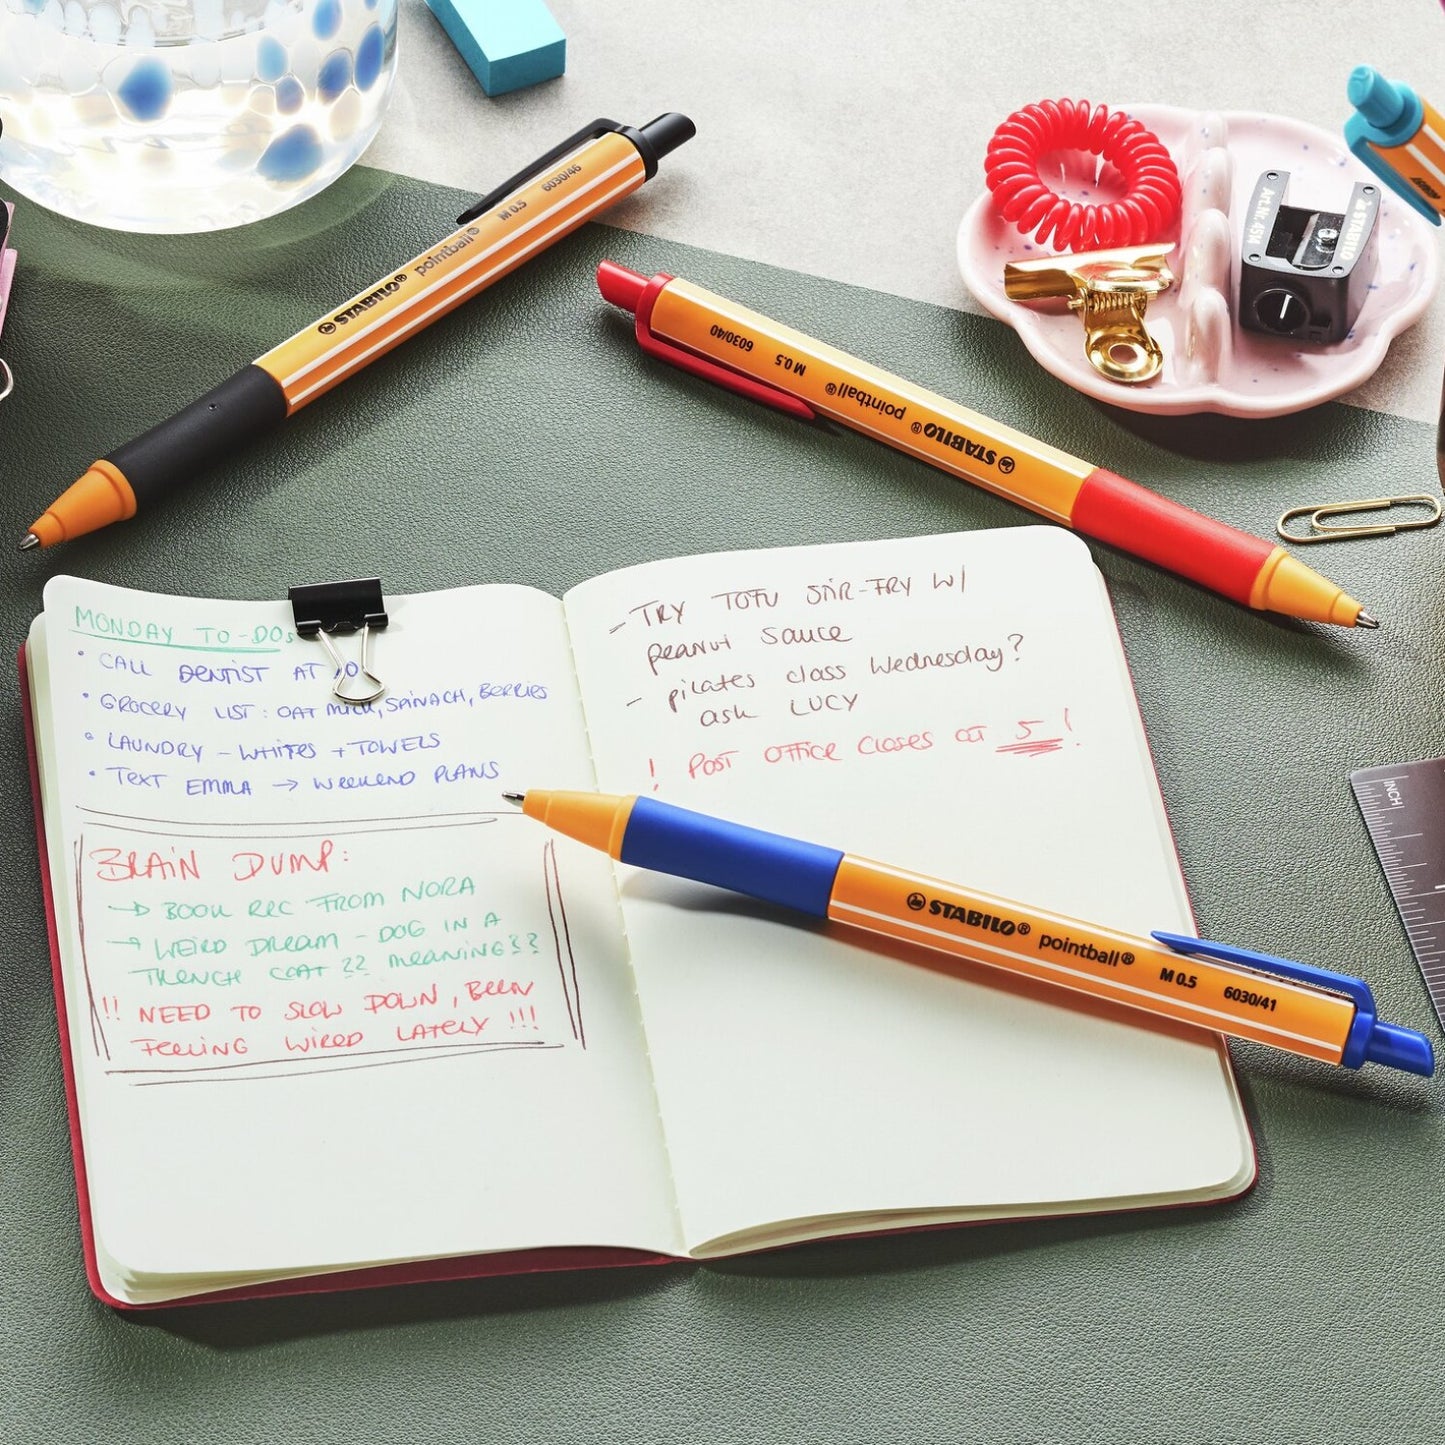 STABILO® pointball® M 0.5 6030/46
STABILO® pointball® M 0.5 6030/40
Art.Nr. 4514
STABILO
MONDAY TO-DOs
• CALL DENTIST AT 10
• GROCERY LIST: OAT MILK, SPINACH, BERRIES
• LAUNDRY - WHITES + TOWELS
• TEXT EMMA → WEEKEND PLANS
BRAIN DUMP:
→ BOOK REC FROM NORA
→ WEIRD DREAM - DOG IN A
TRENCH COAT ?? MEANING??
!! NEED TO SLOW DOWN, BEEN
FEELING WIRED LATELY !!!
- TRY TOFU STIR-FRY W/
peanut sauce
- pilates class Wednesday?
ask LUCY
! POST OFFICE CLOSES AT 5 !
STABILO® pointball® M 0.5 6030/41
INCH